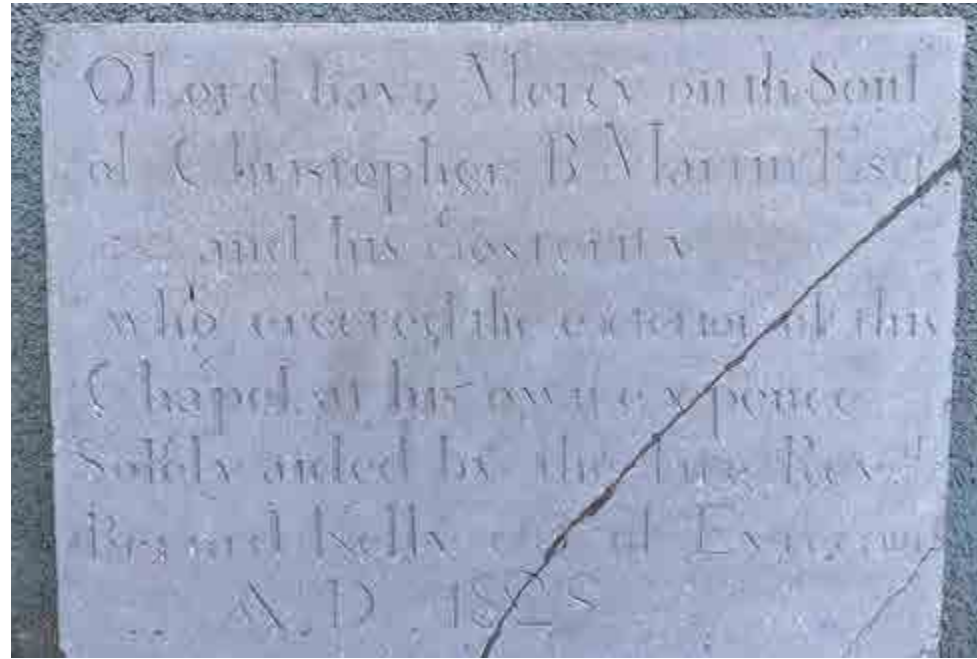 O Lord have Mercy on the Soul
of Christopher B Martin Esq
and his Posterity
who erected the exterior of this
Chapel at his own expence
Solely aided by the Rev.d
Bernard Kelly of
A.D. 1828